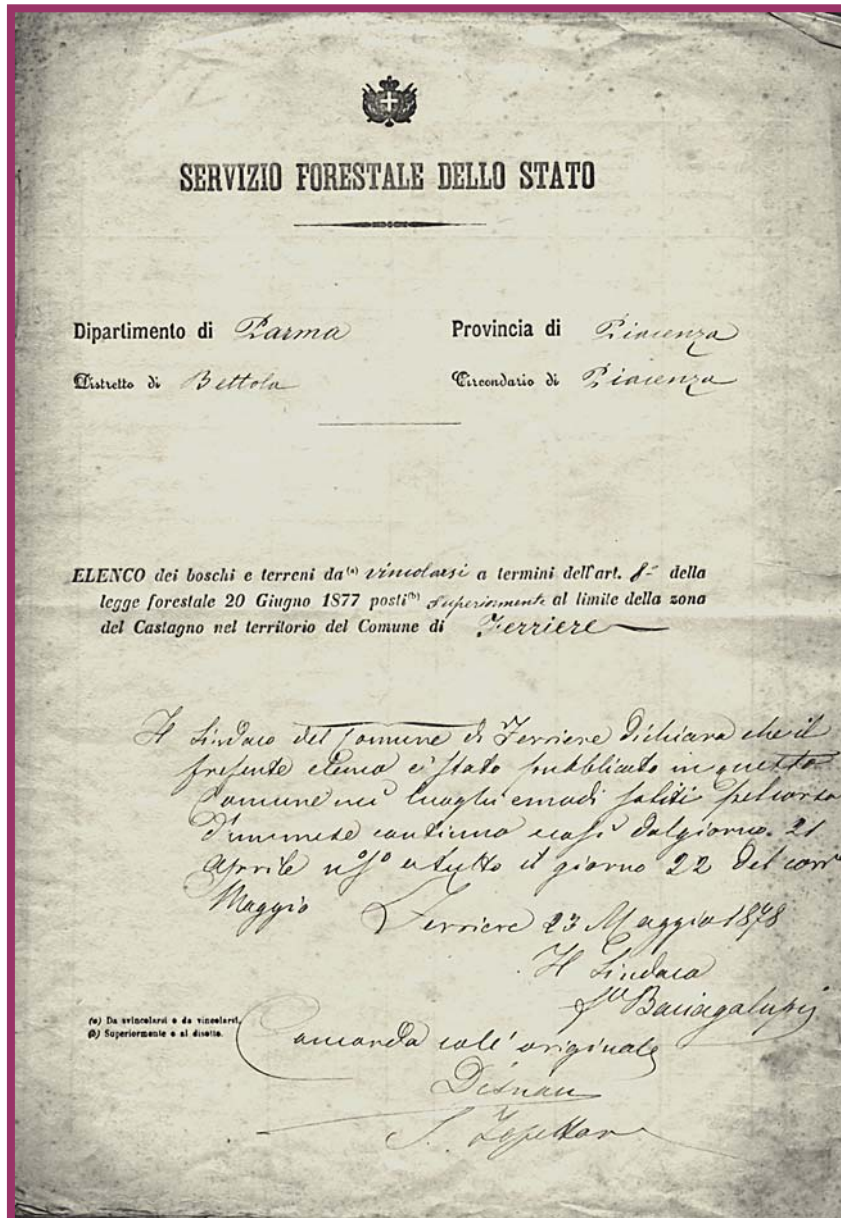 SERVIZIO FORESTALE DELLO STATO
Dipartimento di Parma Provincia di Piacenza
Distretto di Bettola Circondario di Piacenza
ELENCO dei boschi e terreni da (a) vincolarsi a termini dell'art. 8° della
legge forestale 20 Giugno 1877 posti (b) superiormente al limite della zona
del Castagno nel territorio del Comune di Ferriere
Il Sindaco del Comune di Ferriere dichiara che il
presente elenco è stato pubblicato in questo
Comune nei luoghi e modi soliti pel corso
d'un mese continuo e così dal giorno 21
Aprile a tutto il giorno 22 del corr
Maggio
Ferriere 23 Maggio 1878
Il Sindaco
Bacigalupi
(a) Da svincolarsi o da vincolarsi.
(b) Superiormente o al disotto.
Concorda coll'originale